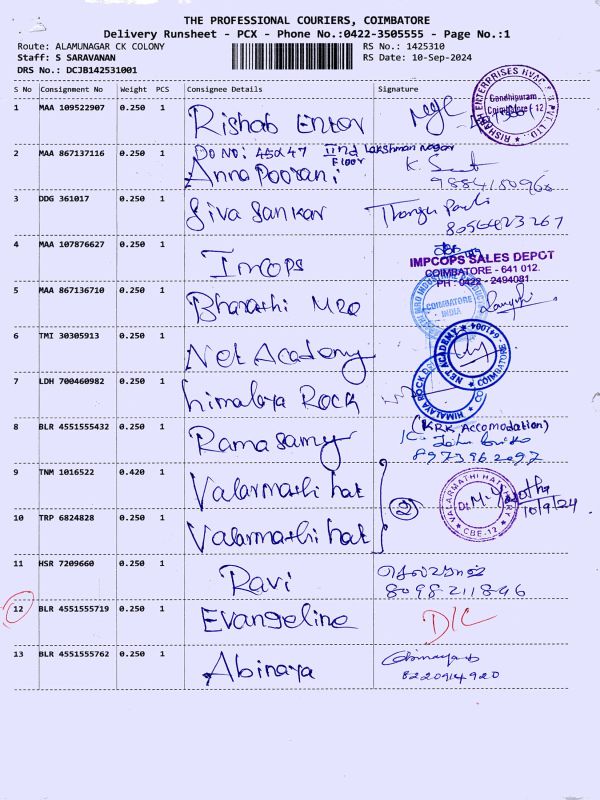 THE PROFESSIONAL COURIERS, COIMBATORE
Delivery Runsheet - PCX - Phone No.:0422-3505555 - Page No.:1
Route: ALAMUNAGAR CK COLONY RS No.: 1425310
Staff: S SARAVANAN RS Date: 10-Sep-2024
DRS No.: DCJB142531001
S No Consignment No Weight PCS Consignee Details Signature
1 MAA 109522907 0.250 1 Rishab Enter
RISHAB ENTERPRISES HVAC PVT LTD
Gandhipuram
Coimbatore - 12
2 MAA 867137116 0.250 1 DO NO: 45 & 47 IInd Floor Lakshman Nagar
Annapoorani
3 DDG 361017 0.250 1 Siva Sankar
8056423267
4 MAA 107876627 0.250 1 Imcops
IMPCOPS SALES DEPOT
COIMBATORE - 641 012.
PH : 0422 - 2494081
5 MAA 867136710 0.250 1 Bharathi Mro
COIMBATORE
INDIA
6 TMI 30305913 0.250 1 Net Academy
NET ACADEMY COIMBATORE - 641004
7 LDH 700460982 0.250 1 himalaya Rock
HIMALAYA ROCK
8 BLR 4551555432 0.250 1 Ramasamy
(KRK Accomodation)
8973962097
9 TNM 1016522 0.420 1 Valarmathi hat
VALARMATHI HATCHERY
CBE-12
10/9/24
10 TRP 6824828 0.250 1 Valarmathi hat
2
11 HSR 7209660 0.250 1 Ravi
8098211846
12 BLR 4551555719 0.250 1 Evangeline D/C
13 BLR 4551555762 0.250 1 Abinaya
Abinaya
8220914920